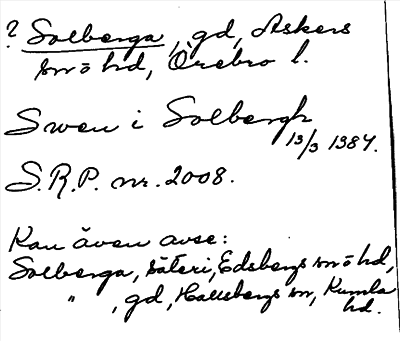 ? Solberga, gd, Askers
sn ö hd, Örebro l.
Swen i Solbergh
13/3 1384.
S.R.P. nr. 2008.
Kan även avse:
Solberga, säteri, Edsbergs sn ö hd,
" , gd, Hallsbergs sn, Kumla
hd.